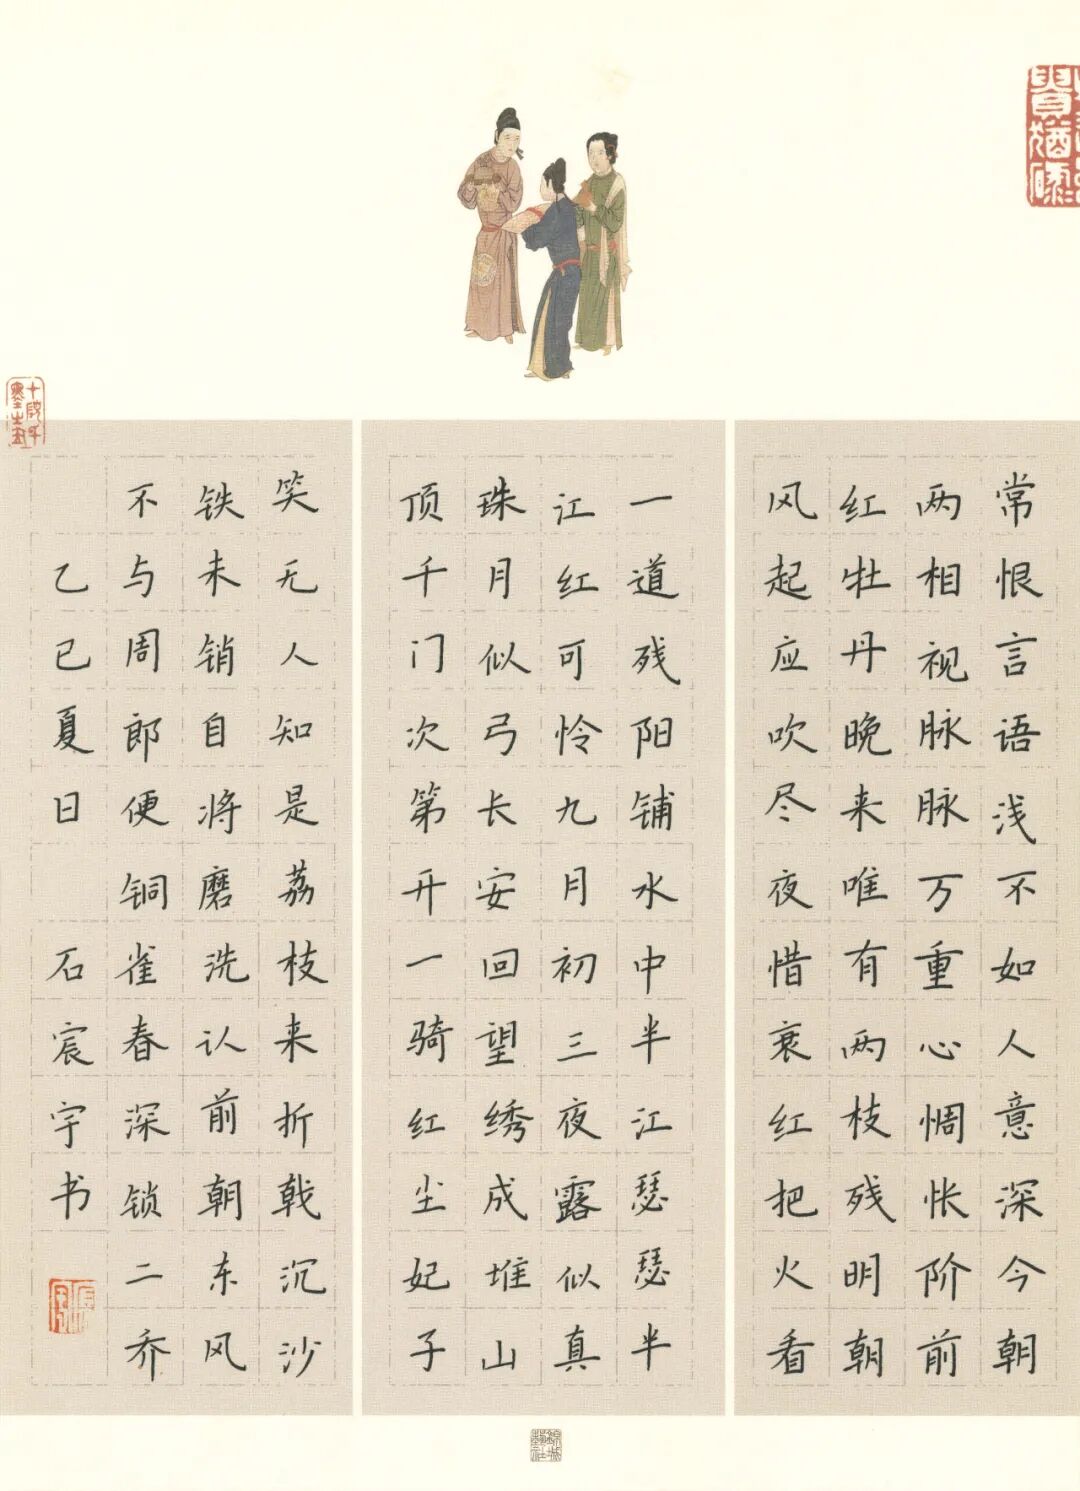 常恨言语浅不如人意深今朝
两相视脉脉万重心惆怅阶前
红牡丹晚来唯有两枝残明朝
风起应吹尽夜惜衰红把火看
一道残阳铺水中半江瑟瑟半
江红可怜九月初三夜露似真
珠月似弓长安回望绣成堆山
顶千门次第开一骑红尘妃子
笑无人知是荔枝来折戟沉沙
铁未销自将磨洗认前朝东风
不与周郎便铜雀春深锁二乔
乙巳夏日 石宸宇书